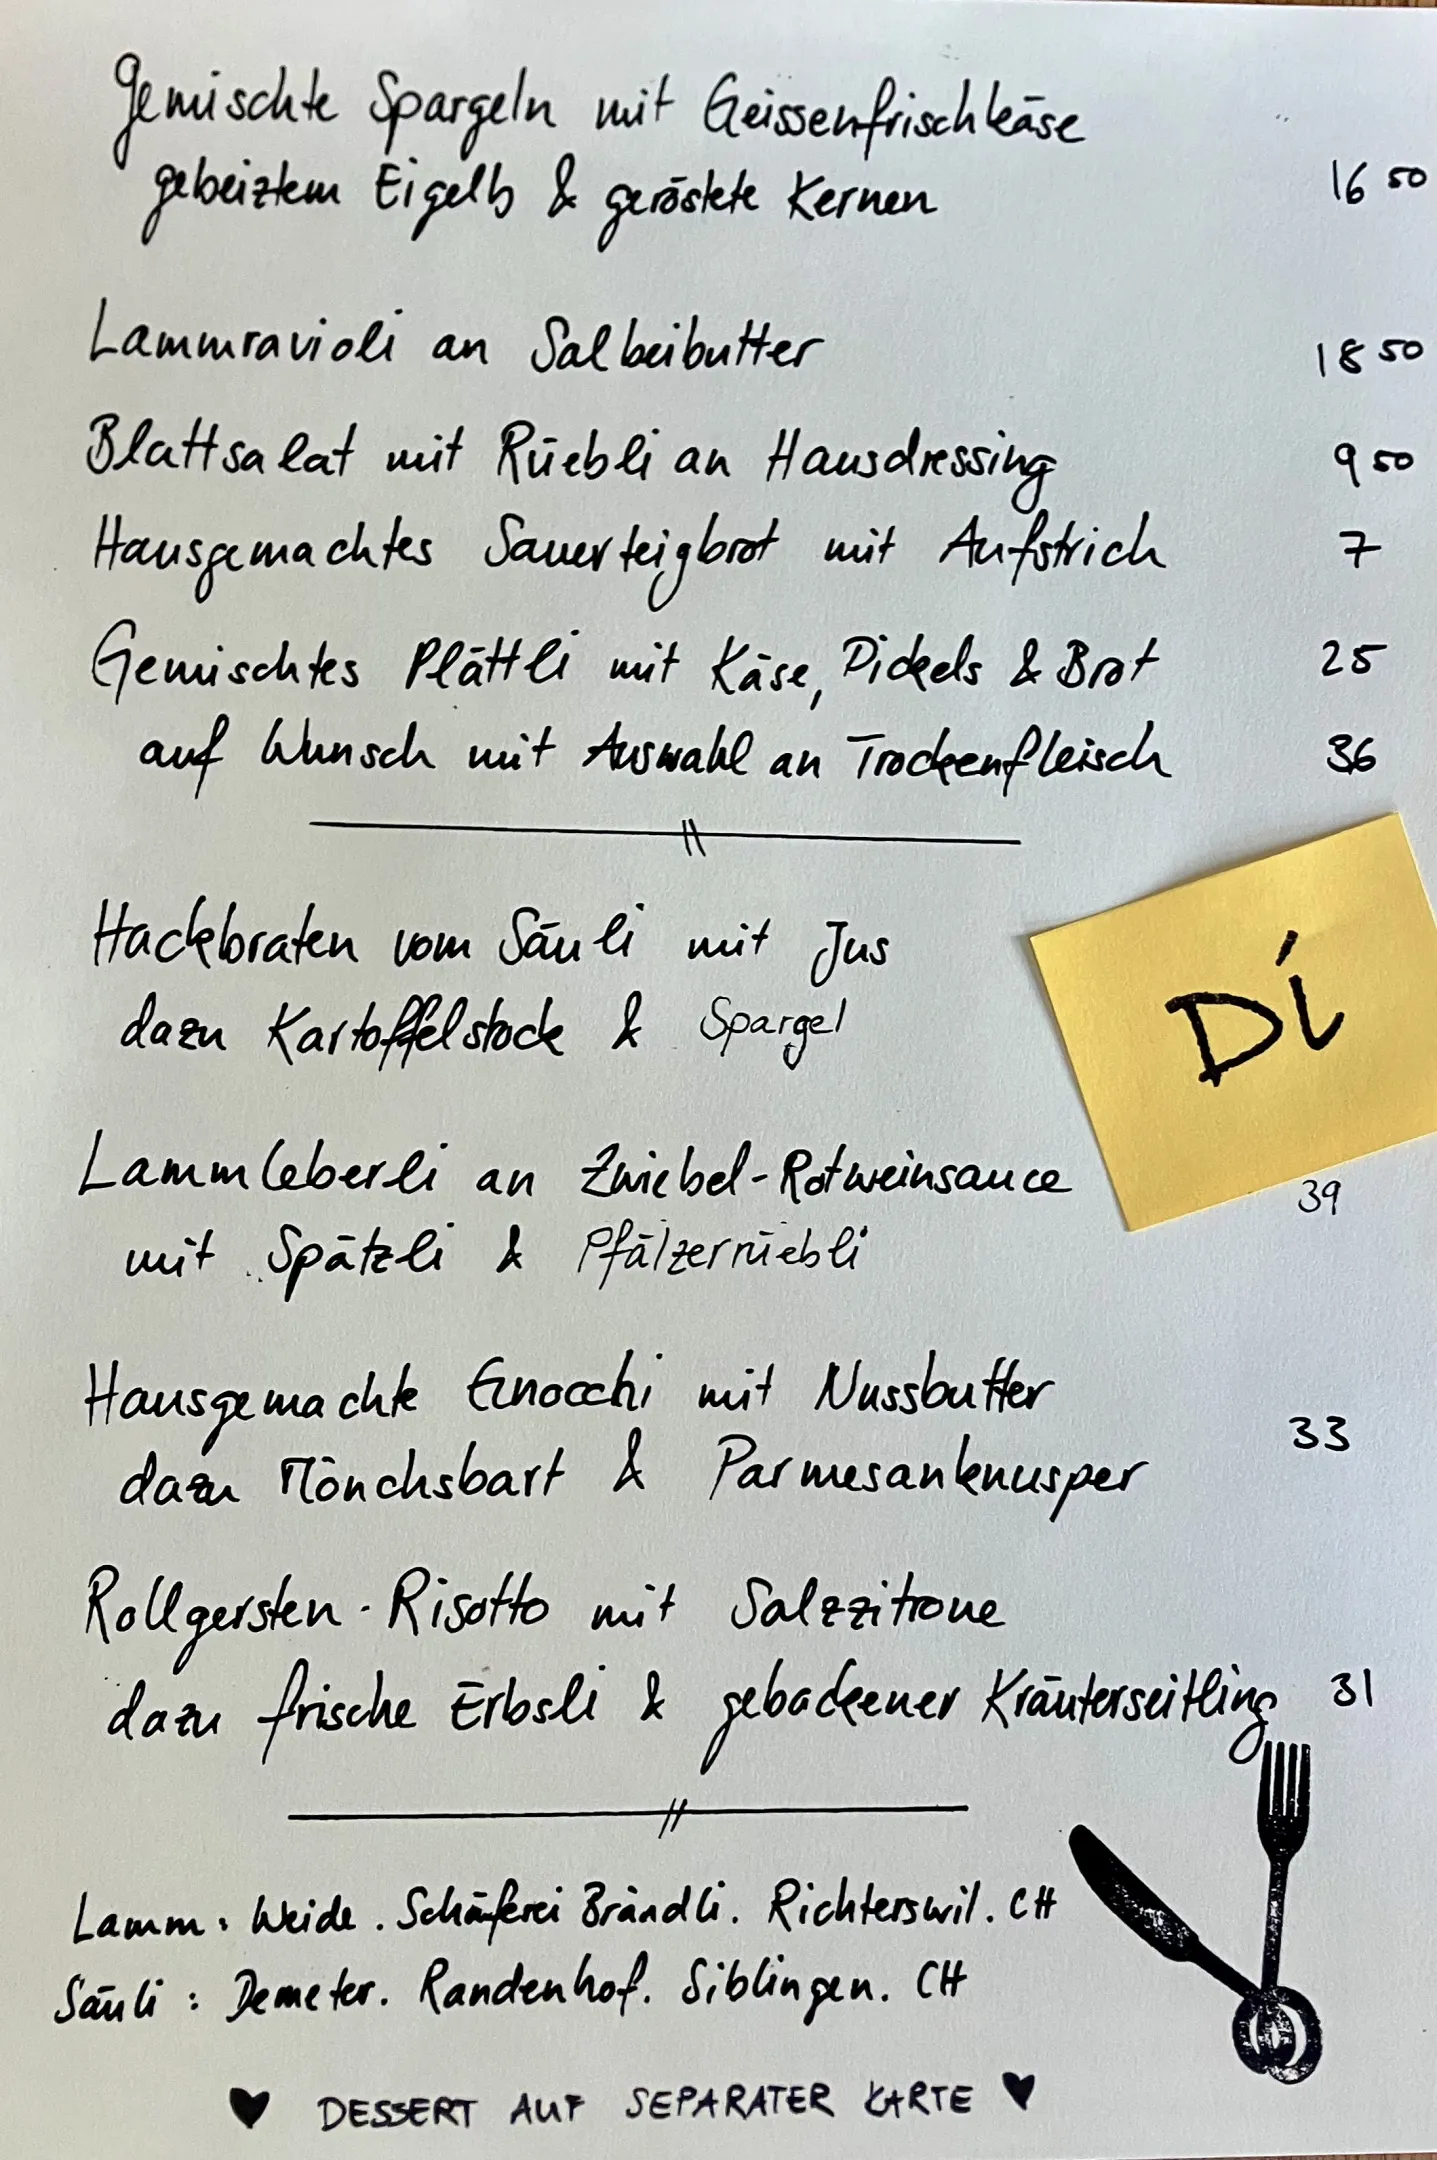 Gemischte Spargeln mit Geissenfrischkäse
gebeiztem Eigelb & geröstete Kernen 16 50
Lammravioli an Salbeibutter 18 50
Blattsalat mit Rüebli an Hausdressing 9 50
Hausgemachtes Sauerteigbrot mit Aufstrich 7
Gemischtes Plättli mit Käse, Pickels & Brot 25
auf Wunsch mit Auswahl an Trockenfleisch 36
Hackbraten vom Säuli mit Jus
dazu Kartoffelstock & Spargel
Di
Lammleberli an Zwiebel-Rotweinsauce 39
mit Spätzli & Pfälzerrüebli
Hausgemachte Gnocchi mit Nussbutter 33
dazu Mönchsbart & Parmesanknusper
Rollgersten-Risotto mit Salzzitrone
dazu frische Erbsli & gebackener Kräuterseitling 31
Lamm: Weide. Schäferei Brändli. Richterswil. CH
Säuli: Demeter. Randenhof. Siblingen. CH
♥ DESSERT AUF SEPARATER KARTE ♥